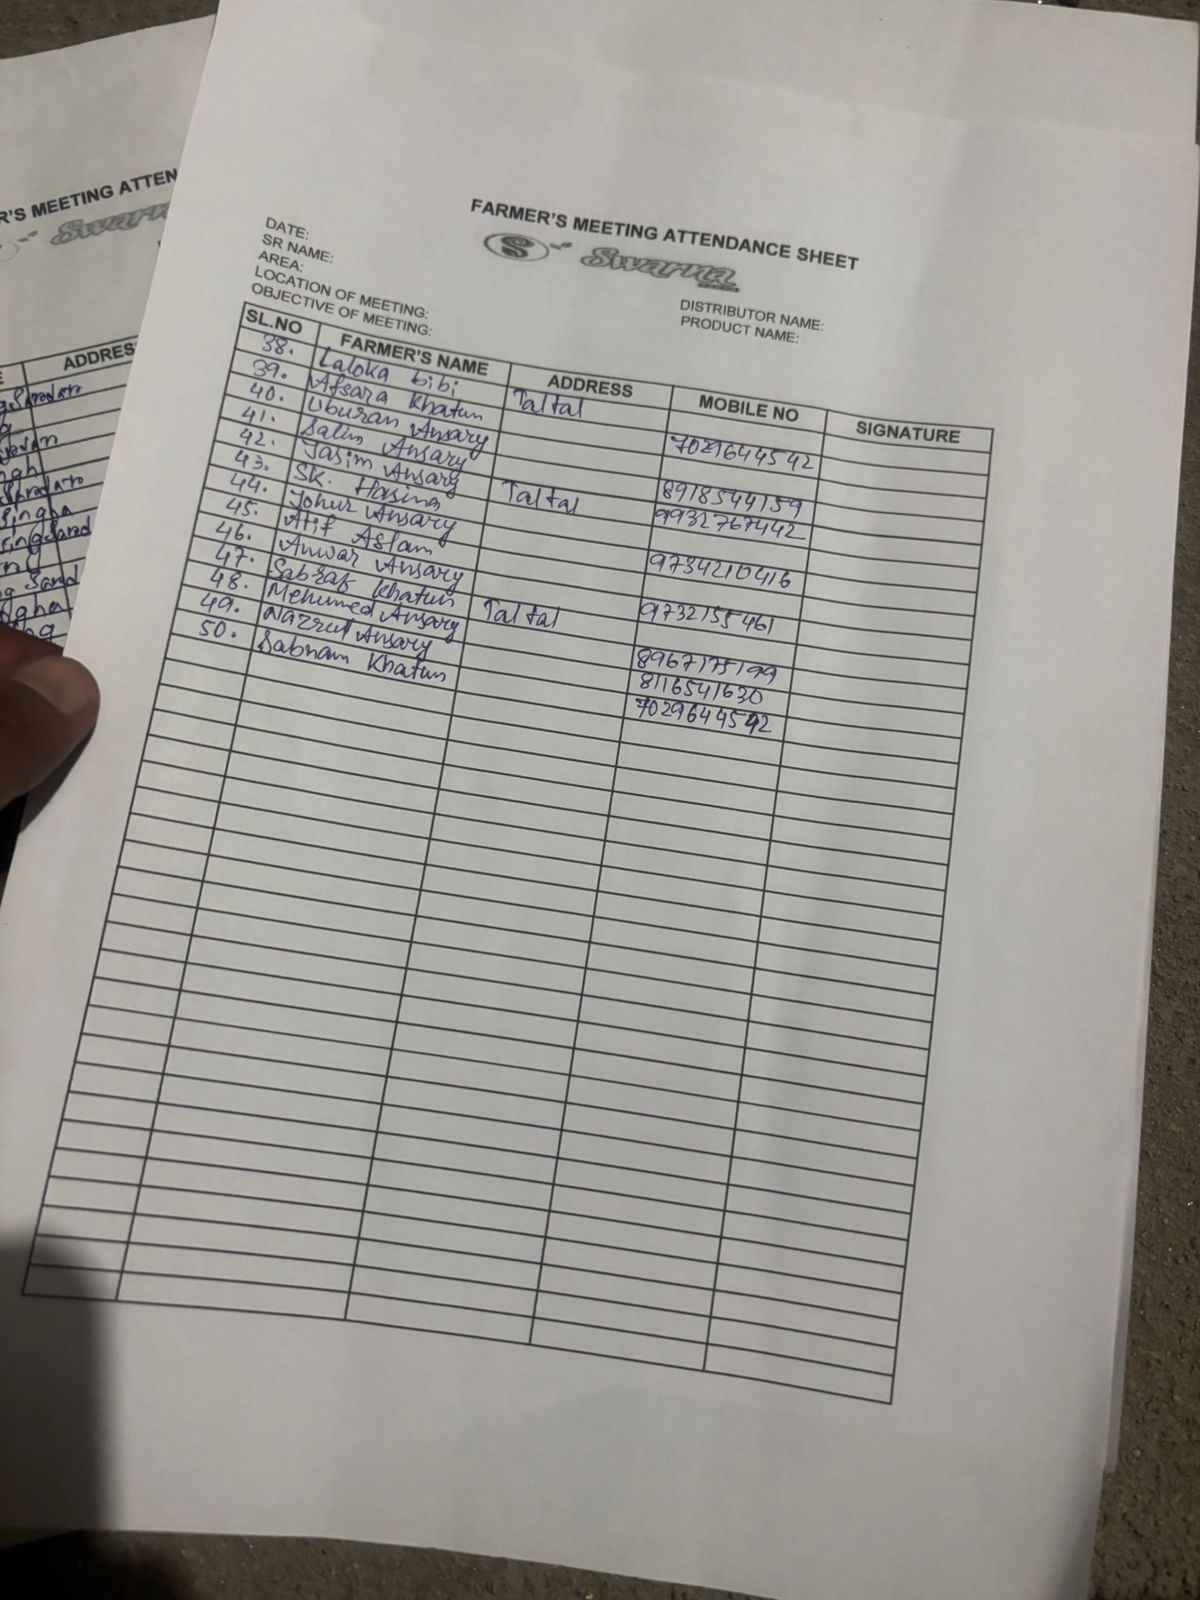 R'S MEETING ATTEN
Swarn
ADDRES
FARMER'S MEETING ATTENDANCE SHEET
S Swarna
DATE:
SR NAME:
AREA:
LOCATION OF MEETING:
OBJECTIVE OF MEETING:
DISTRIBUTOR NAME:
PRODUCT NAME:
SL.NO FARMER'S NAME ADDRESS MOBILE NO SIGNATURE
38. Laloka bibi Taltal
39. Afsara Khatun 7029644542
40. Uburan Ansary
41. Salim Ansary 8918544159
42. Jasim Ansary Taltal 9932767442
43. SK. Hasina
44. Johur Ansary 9734210416
45. Atif Aslam
46. Anwar Ansary 9732155461
47. Sabraf Khatun Taltal
48. Mehumed Ansary 8967175199
49. Nazrul Ansary 8116541630
50. Sabnam Khatun 7029644542